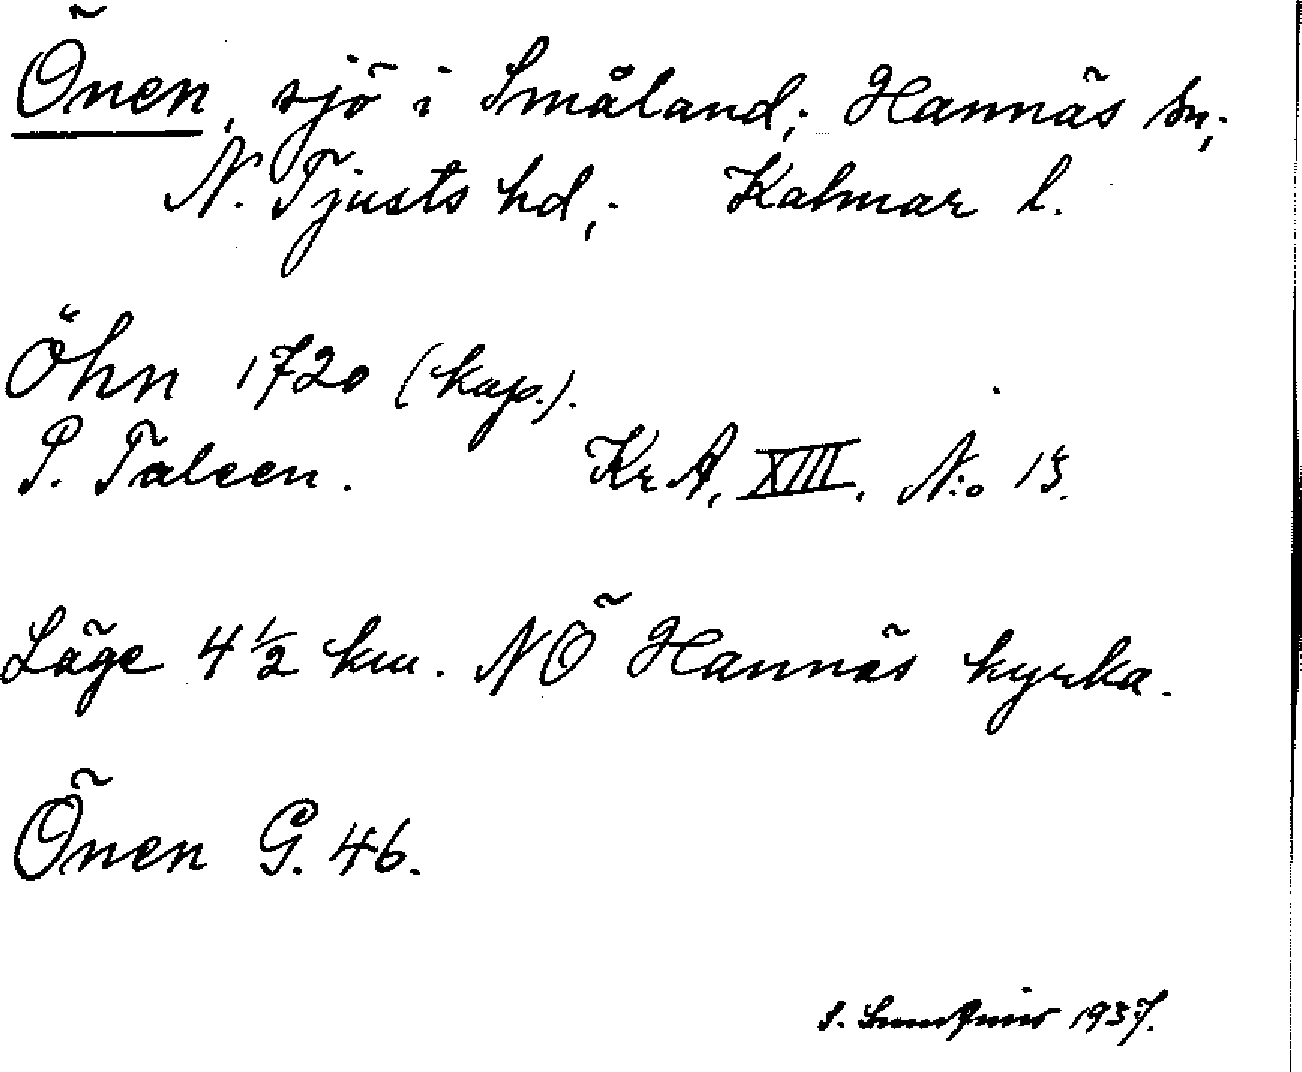 Önen, sjö i Småland; Hannäs sn;
N. Tjusts hd; Kalmar l.
Öhn 1720 (kop.).
P. Taleen. KrA, XIII. N:o 15.
Läge 4 1/2 km. NÖ Hannäs kyrka.
Önen G. 46.
S. 1937.